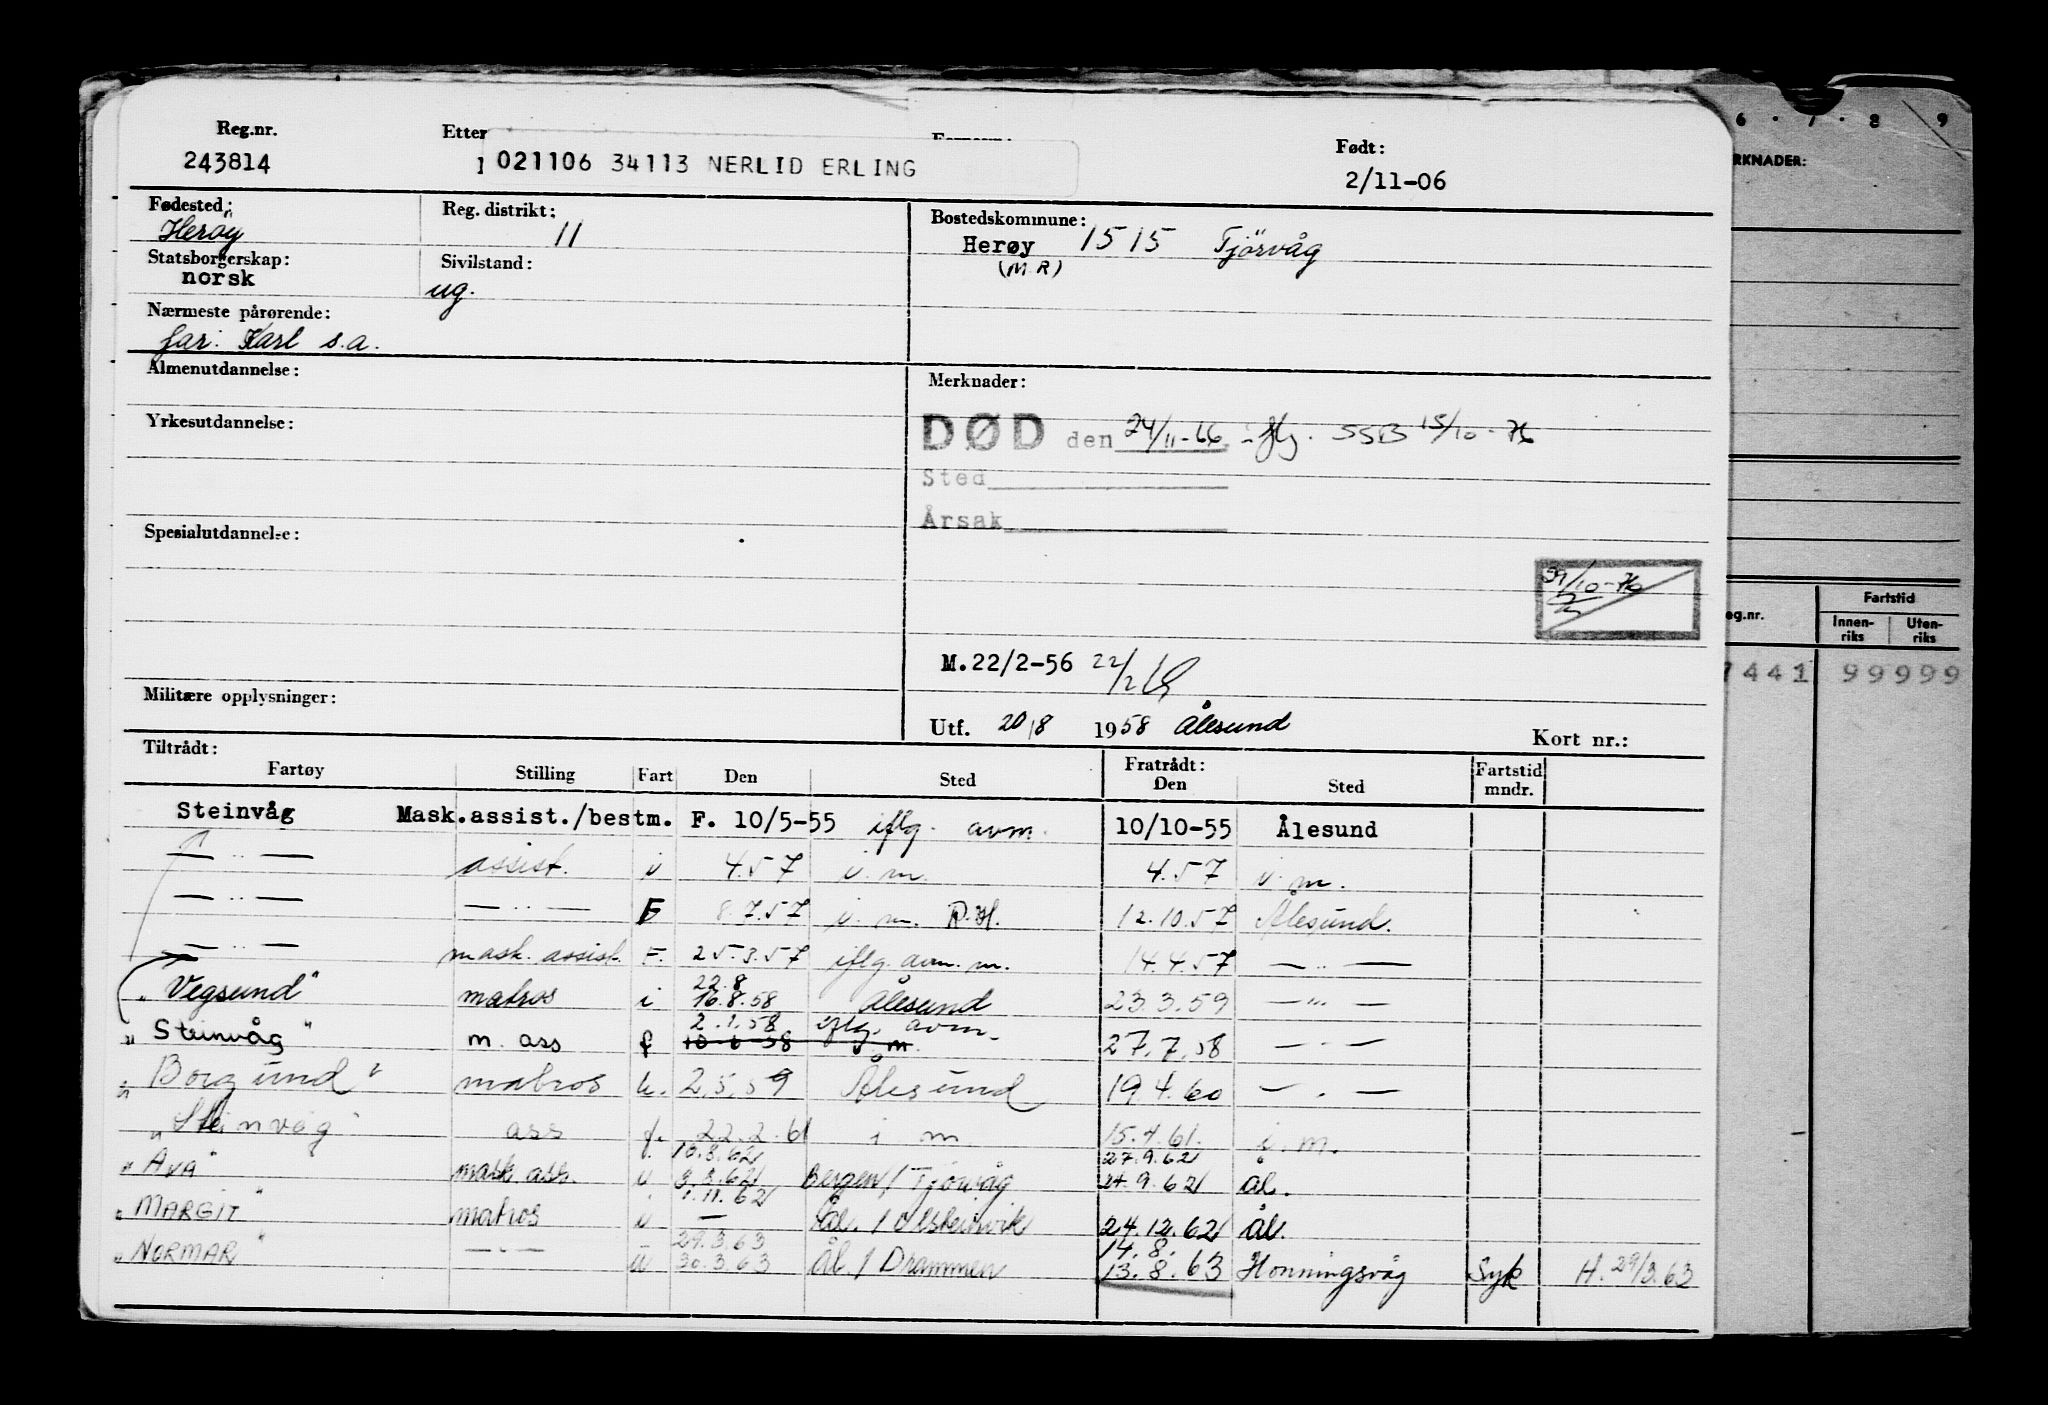 Reg.nr. Etter Født:
243814 021106 34113 NERLID ERLING 2/11-06
Fødested: Reg. distrikt: Bostedskommune:
Herøy 11 Herøy 1515 Tjörvåg
(M.R)
Statsborgerskap: Sivilstand:
norsk ug.
Nærmeste pårørende:
far: Karl s.a.
Almenutdannelse: Merknader:
Yrkesutdannelse: DØD den 24/11-66 iflg. SSB 15/10-76
Sted
Årsak
Spesialutdannelse:
M.22/2-56 22/2
Militære opplysninger:
Utf. 20/8 1958 Ålesund
Kort nr.:
Tiltrådt: Fratrådt:
Fartøy Stilling Fart Den Sted Den Sted Fartstid mndr.
Steinvåg Mask.assist./bestm. F. 10/5-55 iflg. avm. 10/10-55 Ålesund
— " — assist. u 4.57 u. m. 4.57 u. m.
— " — — " — F 8.7.57 u. m. D.H. 12.10.57 Ålesund.
— " — mask. assist. F. 25.3.57 iflg. avm. m. 14.4.57 — " —
22.8
"Vegsund" matros i 16.8.58 Ålesund 23.3.59 — " —
2.1.58 iflg. avm.
"Steinvåg" m. ass f 27.7.58 — " —
"Borgund" matros u. 2.5.59 Ålesund 19.4.60 — " —
"Steinvåg ass f. 22.2.61 i m. 15.4.61. i. m.
10.8.62 27.9.62
"AVA" mask ass. u 3.8.62 Bergen / Tjörvåg 24.9.62 Ål.
1.11.62
"MARGIT" matros u — Ål. / Ulsteinvik 24.12.62 Ål.
29.3.63 14.8.
"NORMAR" — " — u 30.3.63 Ål. / Drammen 13.8.63 Honningsvåg Syk H. 29/3.63
6 . 7 . 8 9
RKNADER:
eg.nr. Fartstid
Innen-riks Uten-riks
7441 99999